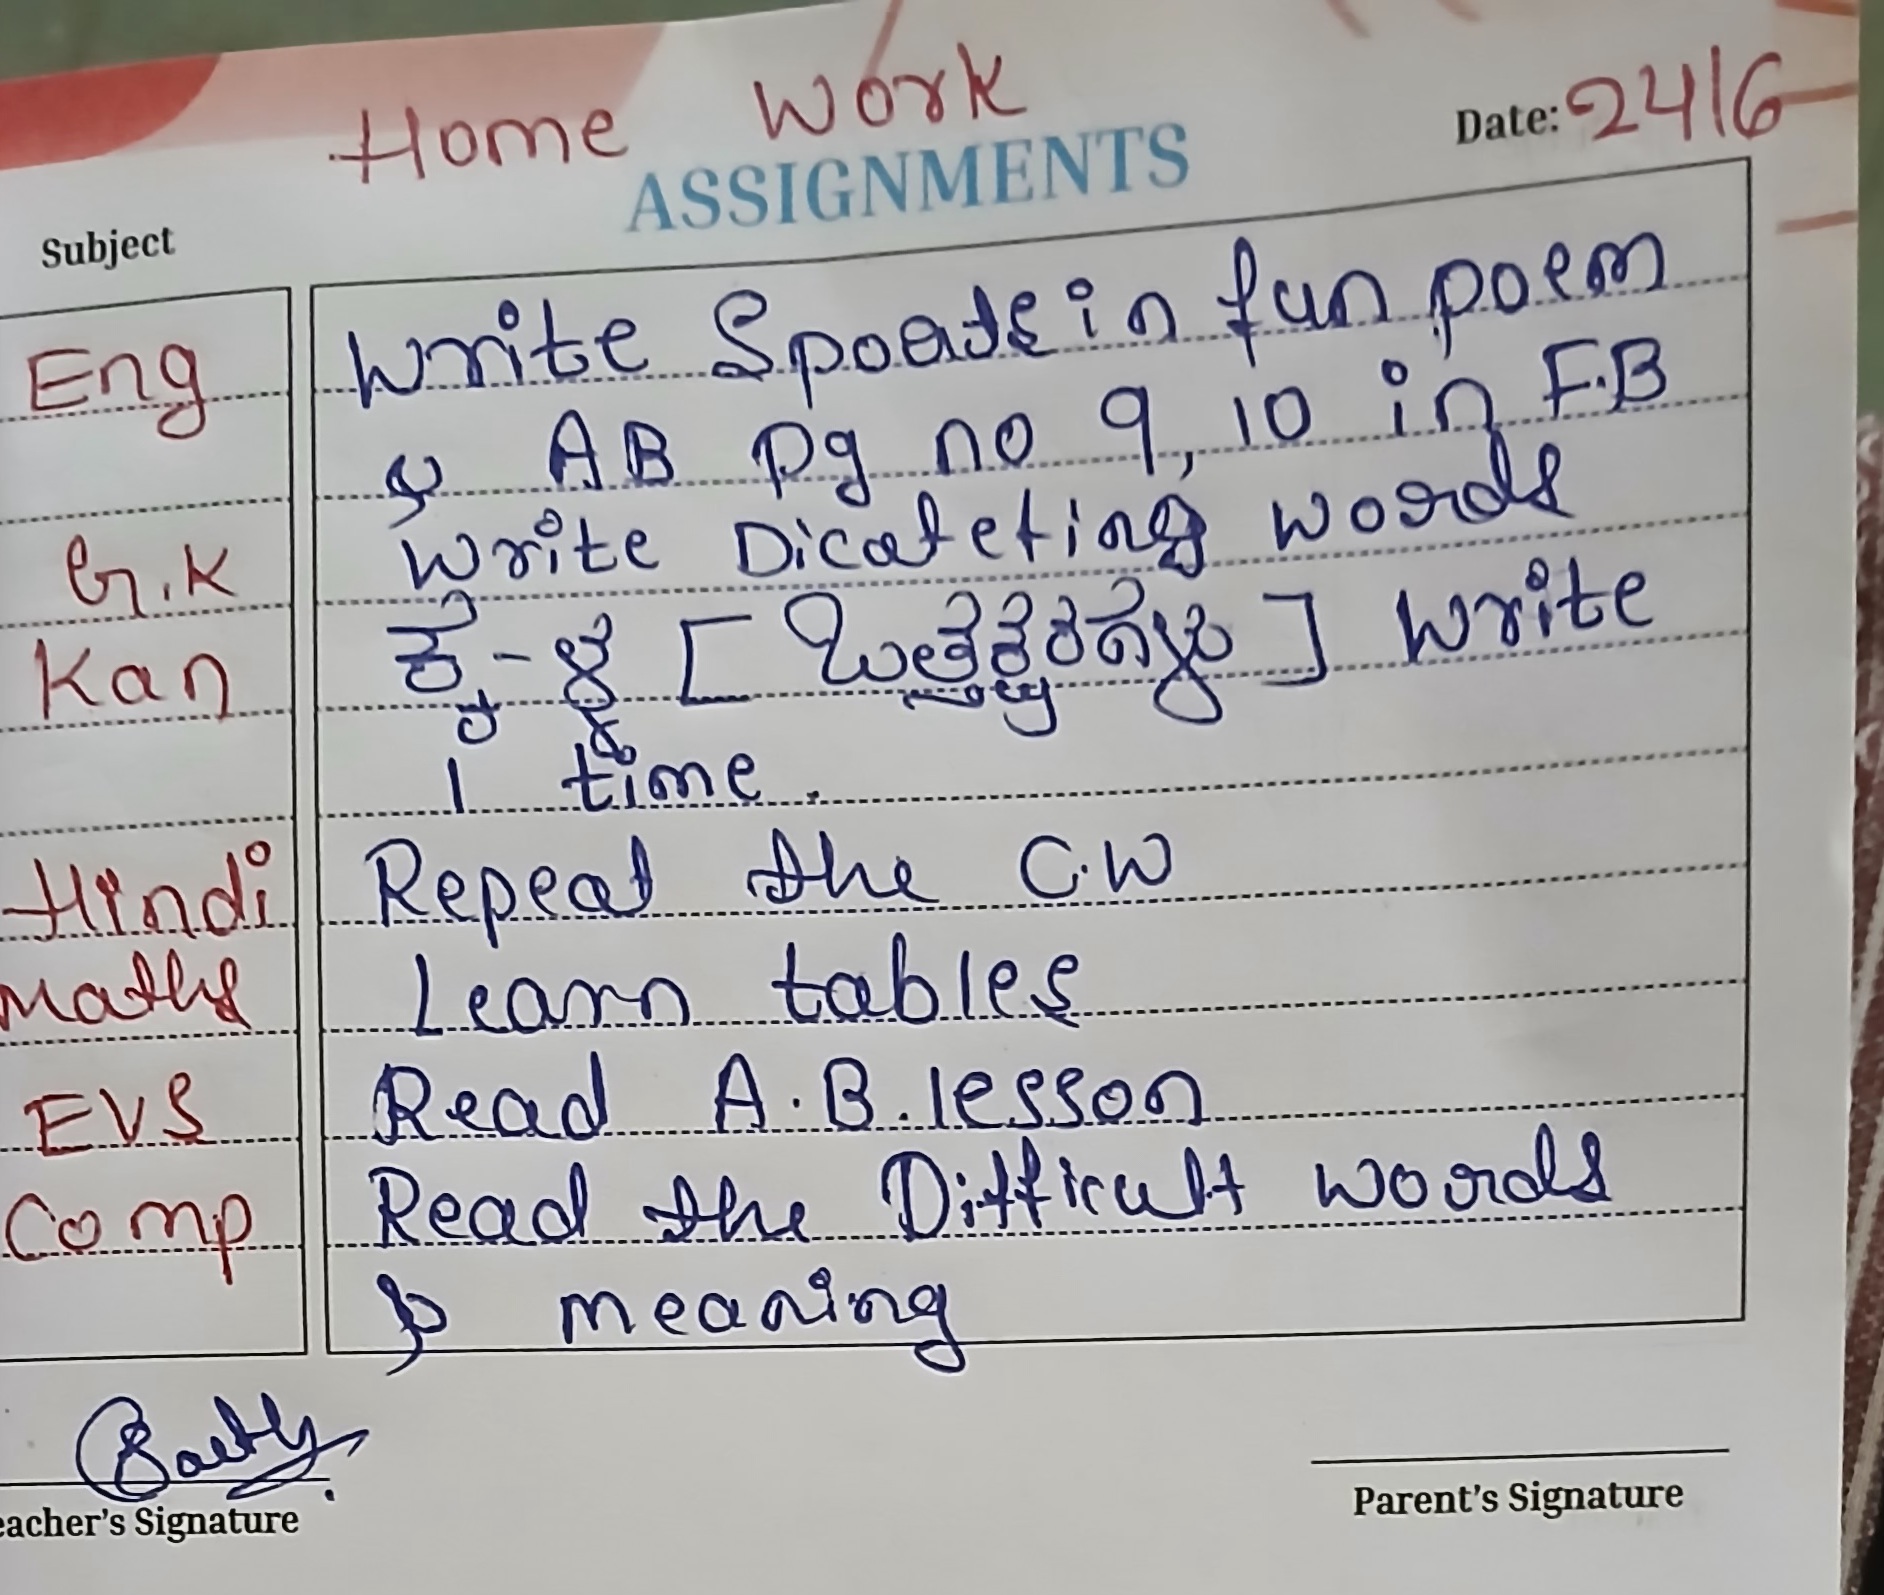 Home Work
ASSIGNMENTS
Date: 24/6
Subject
Eng Write Sports in fun poem
& AB pg no 9, 10 in F.B
G.K Write Dicateting words
Kan ಕ್ಕ-ಳ್ಳ [ಒತ್ತಕ್ಷರಗಳು] Write
1 time.
Hindi Repeat the C.W
Maths Learn tables
EVS Read A.B. lesson
Comp Read the Difficult words
& meaning
eacher's Signature
Parent's Signature